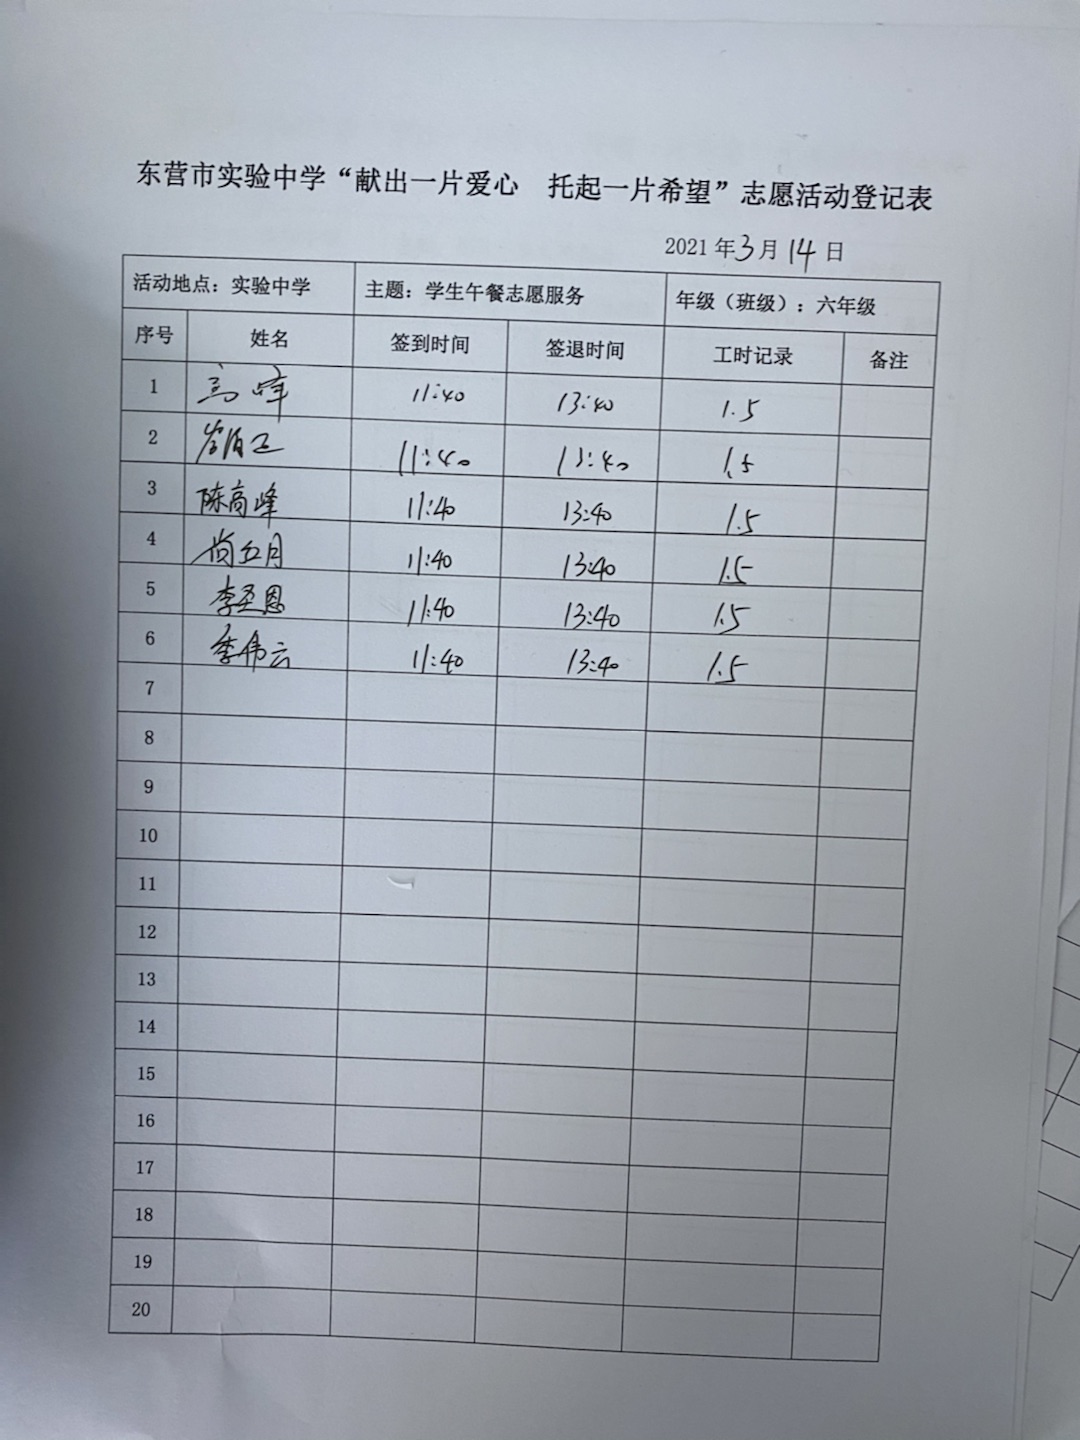 东营市实验中学“献出一片爱心 托起一片希望”志愿活动登记表
2021年3月14日
活动地点：实验中学 主题：学生午餐志愿服务 年级（班级）：六年级
序号 姓名 签到时间 签退时间 工时记录 备注
1 高峰 11:40 13:40 1.5
2 11:40 13:40 1.5
3 陈高峰 11:40 13:40 1.5
4 尚立月 11:40 13:40 1.5
5 李圣恩 11:40 13:40 1.5
6 季伟云 11:40 13:40 1.5
7
8
9
10
11
12
13
14
15
16
17
18
19
20